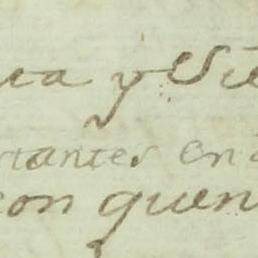 ca y Sie
rtantes en
con quen